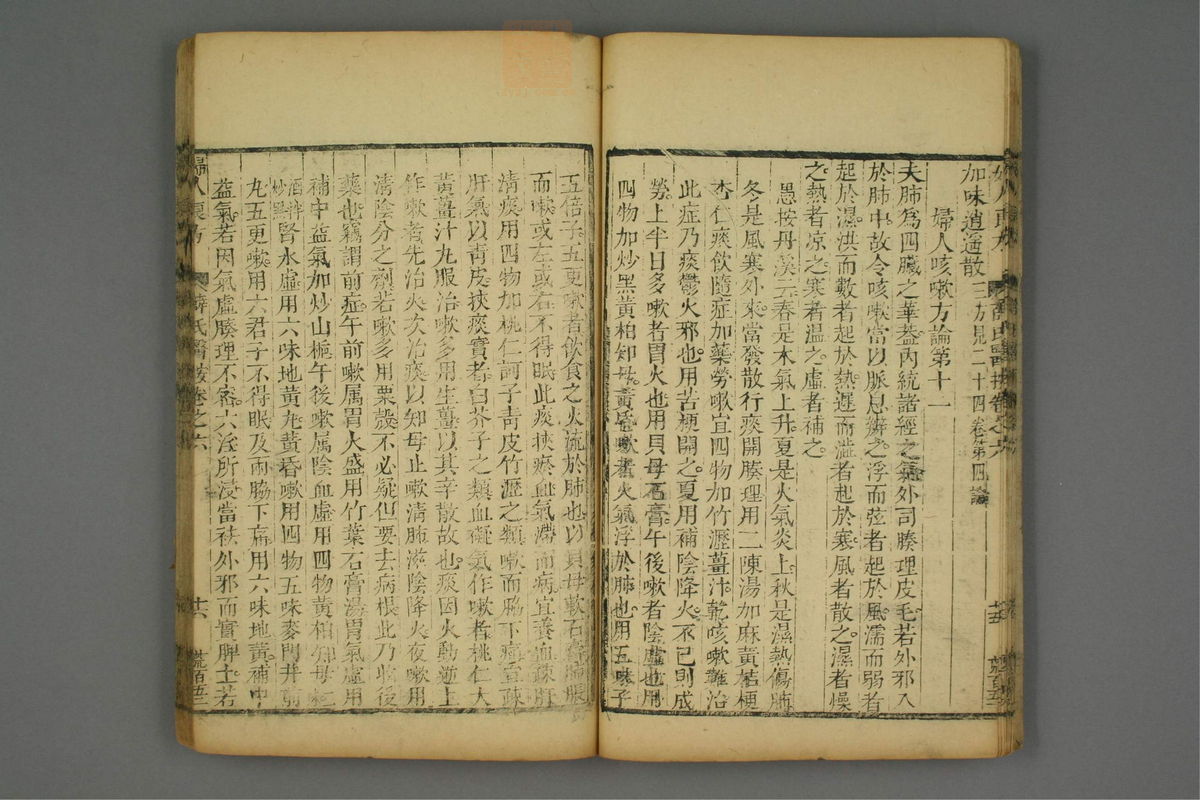 加味逍遥散 三方見二十四卷第四論
婦人咳嗽方論第十一
夫肺為四臟之華葢内統諸經之氣外司腠理皮毛若外邪入
於肺中故令咳嗽當以脈息辨之浮而弦者起於風濡而弱者
起於濕洪而數者起於熱遲而澁者起於寒風者散之濕者燥
之熱者凉之寒者温之虛者補之
愚按丹溪云春是木氣上升夏是火氣炎上秋是濕熱傷肺
冬是風寒外來當發散行痰開腠理用二陳湯加麻黃桔梗
杏仁痰飲隨症加藥勞嗽宜四物加竹瀝薑汁乾咳嗽難治
此症乃痰鬱火邪也用苦梗開之夏用補陰降火不已則成
勞上半日多嗽者胃火也用貝母石膏午後嗽者陰虛也用
四物加炒黑黃柏知母黃昏嗽者火氣浮於肺也用五味子
五倍子五更嗽者飲食之火流於肺也以貝母軟石膏肺脹
而嗽或左或右不得眠此痰挾瘀血氣滯而病宜養血疎肝
清痰用四物加桃仁訶子青皮竹瀝之類嗽而脇下痛宜疎
肝氣以青皮挾痰實者白芥子之類血礙氣作嗽者桃仁大
黃薑汁丸服治嗽多用生薑以其辛散故也痰因火動逆上
作嗽者先治火次治痰以知母止嗽清肺滋陰降火夜嗽用
清陰分之劑若嗽多用粟殼不必疑但要去病根此乃收後
藥也竊謂前症午前嗽属胃火盛用竹葉石膏湯胃氣虛用
補中益氣加炒山梔午後嗽属陰血虛用四物黃柏知母
酒拌炒黑腎水虛用六味地黃丸黃昏嗽用四物五味麥門丼朝
九五更嗽用六君子不得眠及兩脇下痛用六味地黃補中
益氣若因氣虛腠理不密六淫所浸當祛外邪而實脾土若
婦人良方
薛氏醫按卷之六